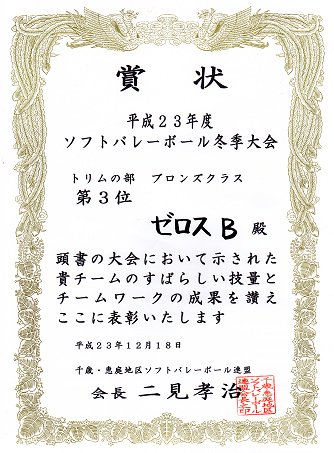 賞状
平成23年度
ソフトバレーボール冬季大会
トリムの部 ブロンズクラス
第3位
ゼロスB 殿
頭書の大会において示された
貴チームのすばらしい技量と
チームワークの成果を讃え
ここに表彰いたします
平成23年12月18日
千歳・恵庭地区ソフトバレーボール連盟
会長 二見孝治
千歳恵庭地区
ソフトバレーボール
連盟会長之印